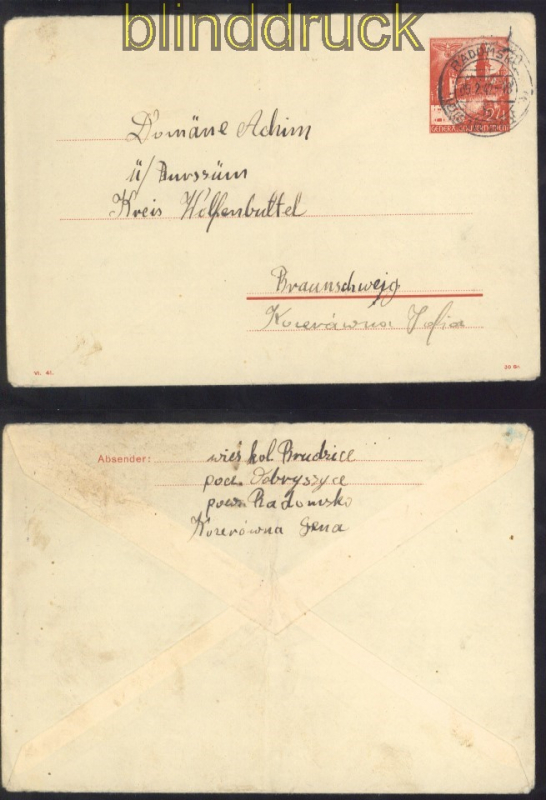 blinddruck
RADOMSKO
GENERALGOUVERNEMENT
Domäne Achim
ü/ Burssüm
Kreis Wolfenbuttel
Braunschweig
Kozerówna Zofia
VI. 41.
Absender:
wieś kol. Brudzice
pocz. Dobryszyce
pow. Radomsko
Kozerówna Gena